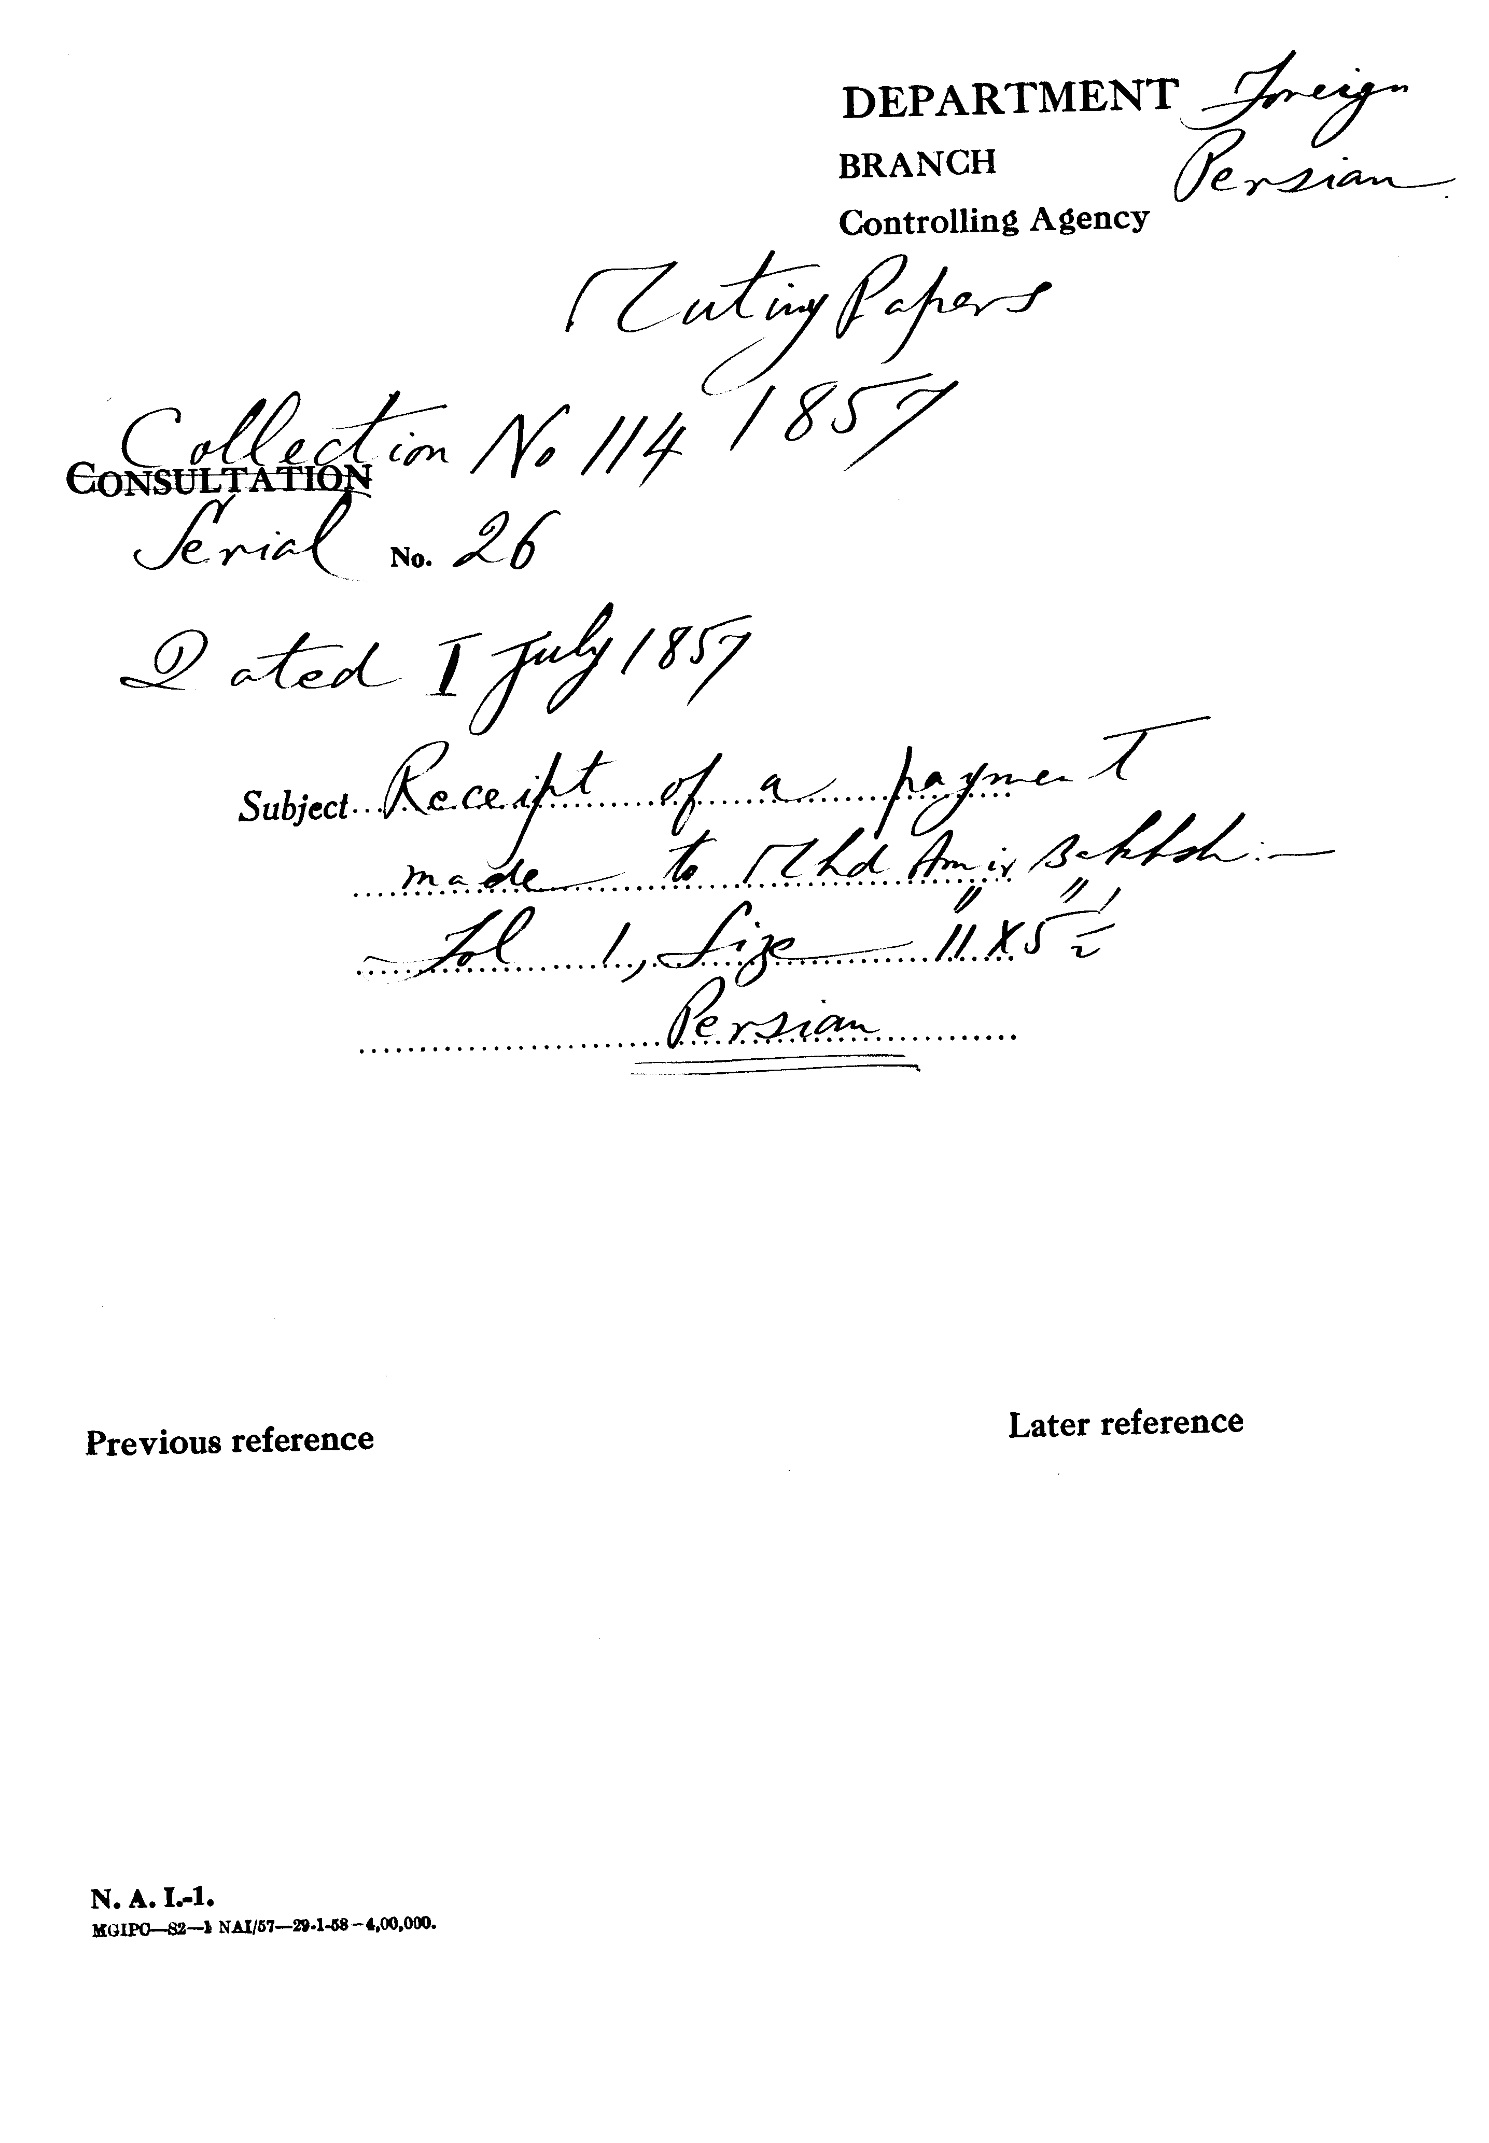 DEPARTMENT Foreign
BRANCH Persian
Controlling Agency
Mutiny Papers
1857
Collection No 114
CONSULTATION
Serial No. 26
Dated I July 1857
Subject Receipt of a payment
made to Mhd Amir Bakhsh:—
Fol 1, Size 11" X 5 1/2"
Persian
Previous reference Later reference
N. A. I.-1.
MGIPC—S2—1 NAI/57—29-1-58—4,00,000.